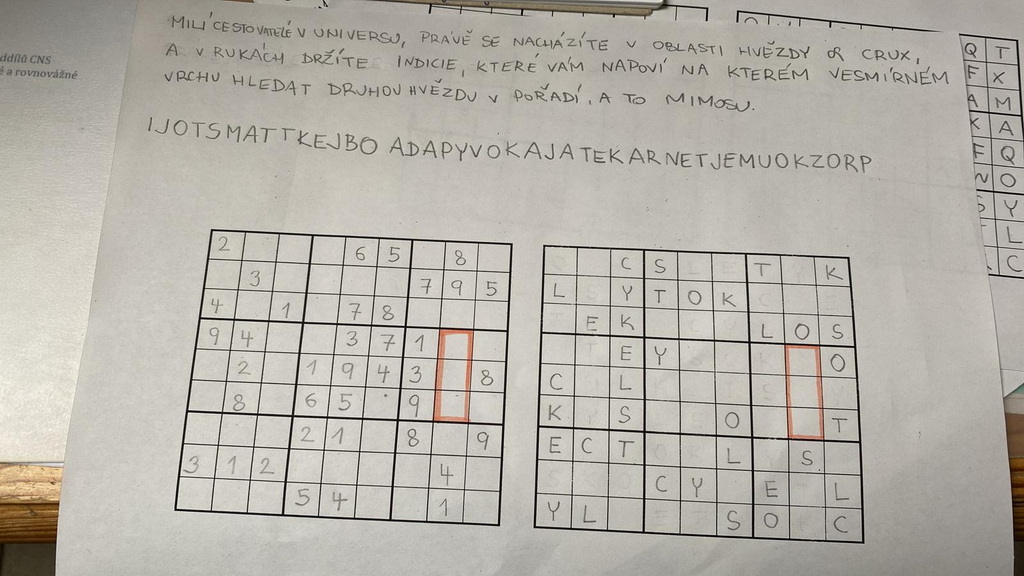 ddílů CNS
é a rovnovážné
MILÍ CESTOVATELÉ V UNIVERSU, PRÁVĚ SE NACHÁZÍTE V OBLASTI HVĚZDY α CRUX,
A V RUKÁCH DRŽÍTE INDICIE, KTERÉ VÁM NAPOVÍ NA KTERÉM VESMÍRNÉM
VRCHU HLEDAT DRUHOU HVĚZDU V POŘADÍ, A TO MIMOSU.
IJOTSMATTKEJBO ADAPYVOKAJATEKARNETJEMUOKZORP
2 6 5 8
3 7 9 5
4 1 7 8
9 4 3 7 1
2 1 9 4 3 8
8 6 5 9
2 1 8 9
3 1 2 4
5 4 1
C S T K
L Y T O K
E K L O S
E Y O
C L
K S O T
E C T L S
C Y E L
Y L S O C
Q T
F X
A M
K A
F Q
N O
S Y
L
C